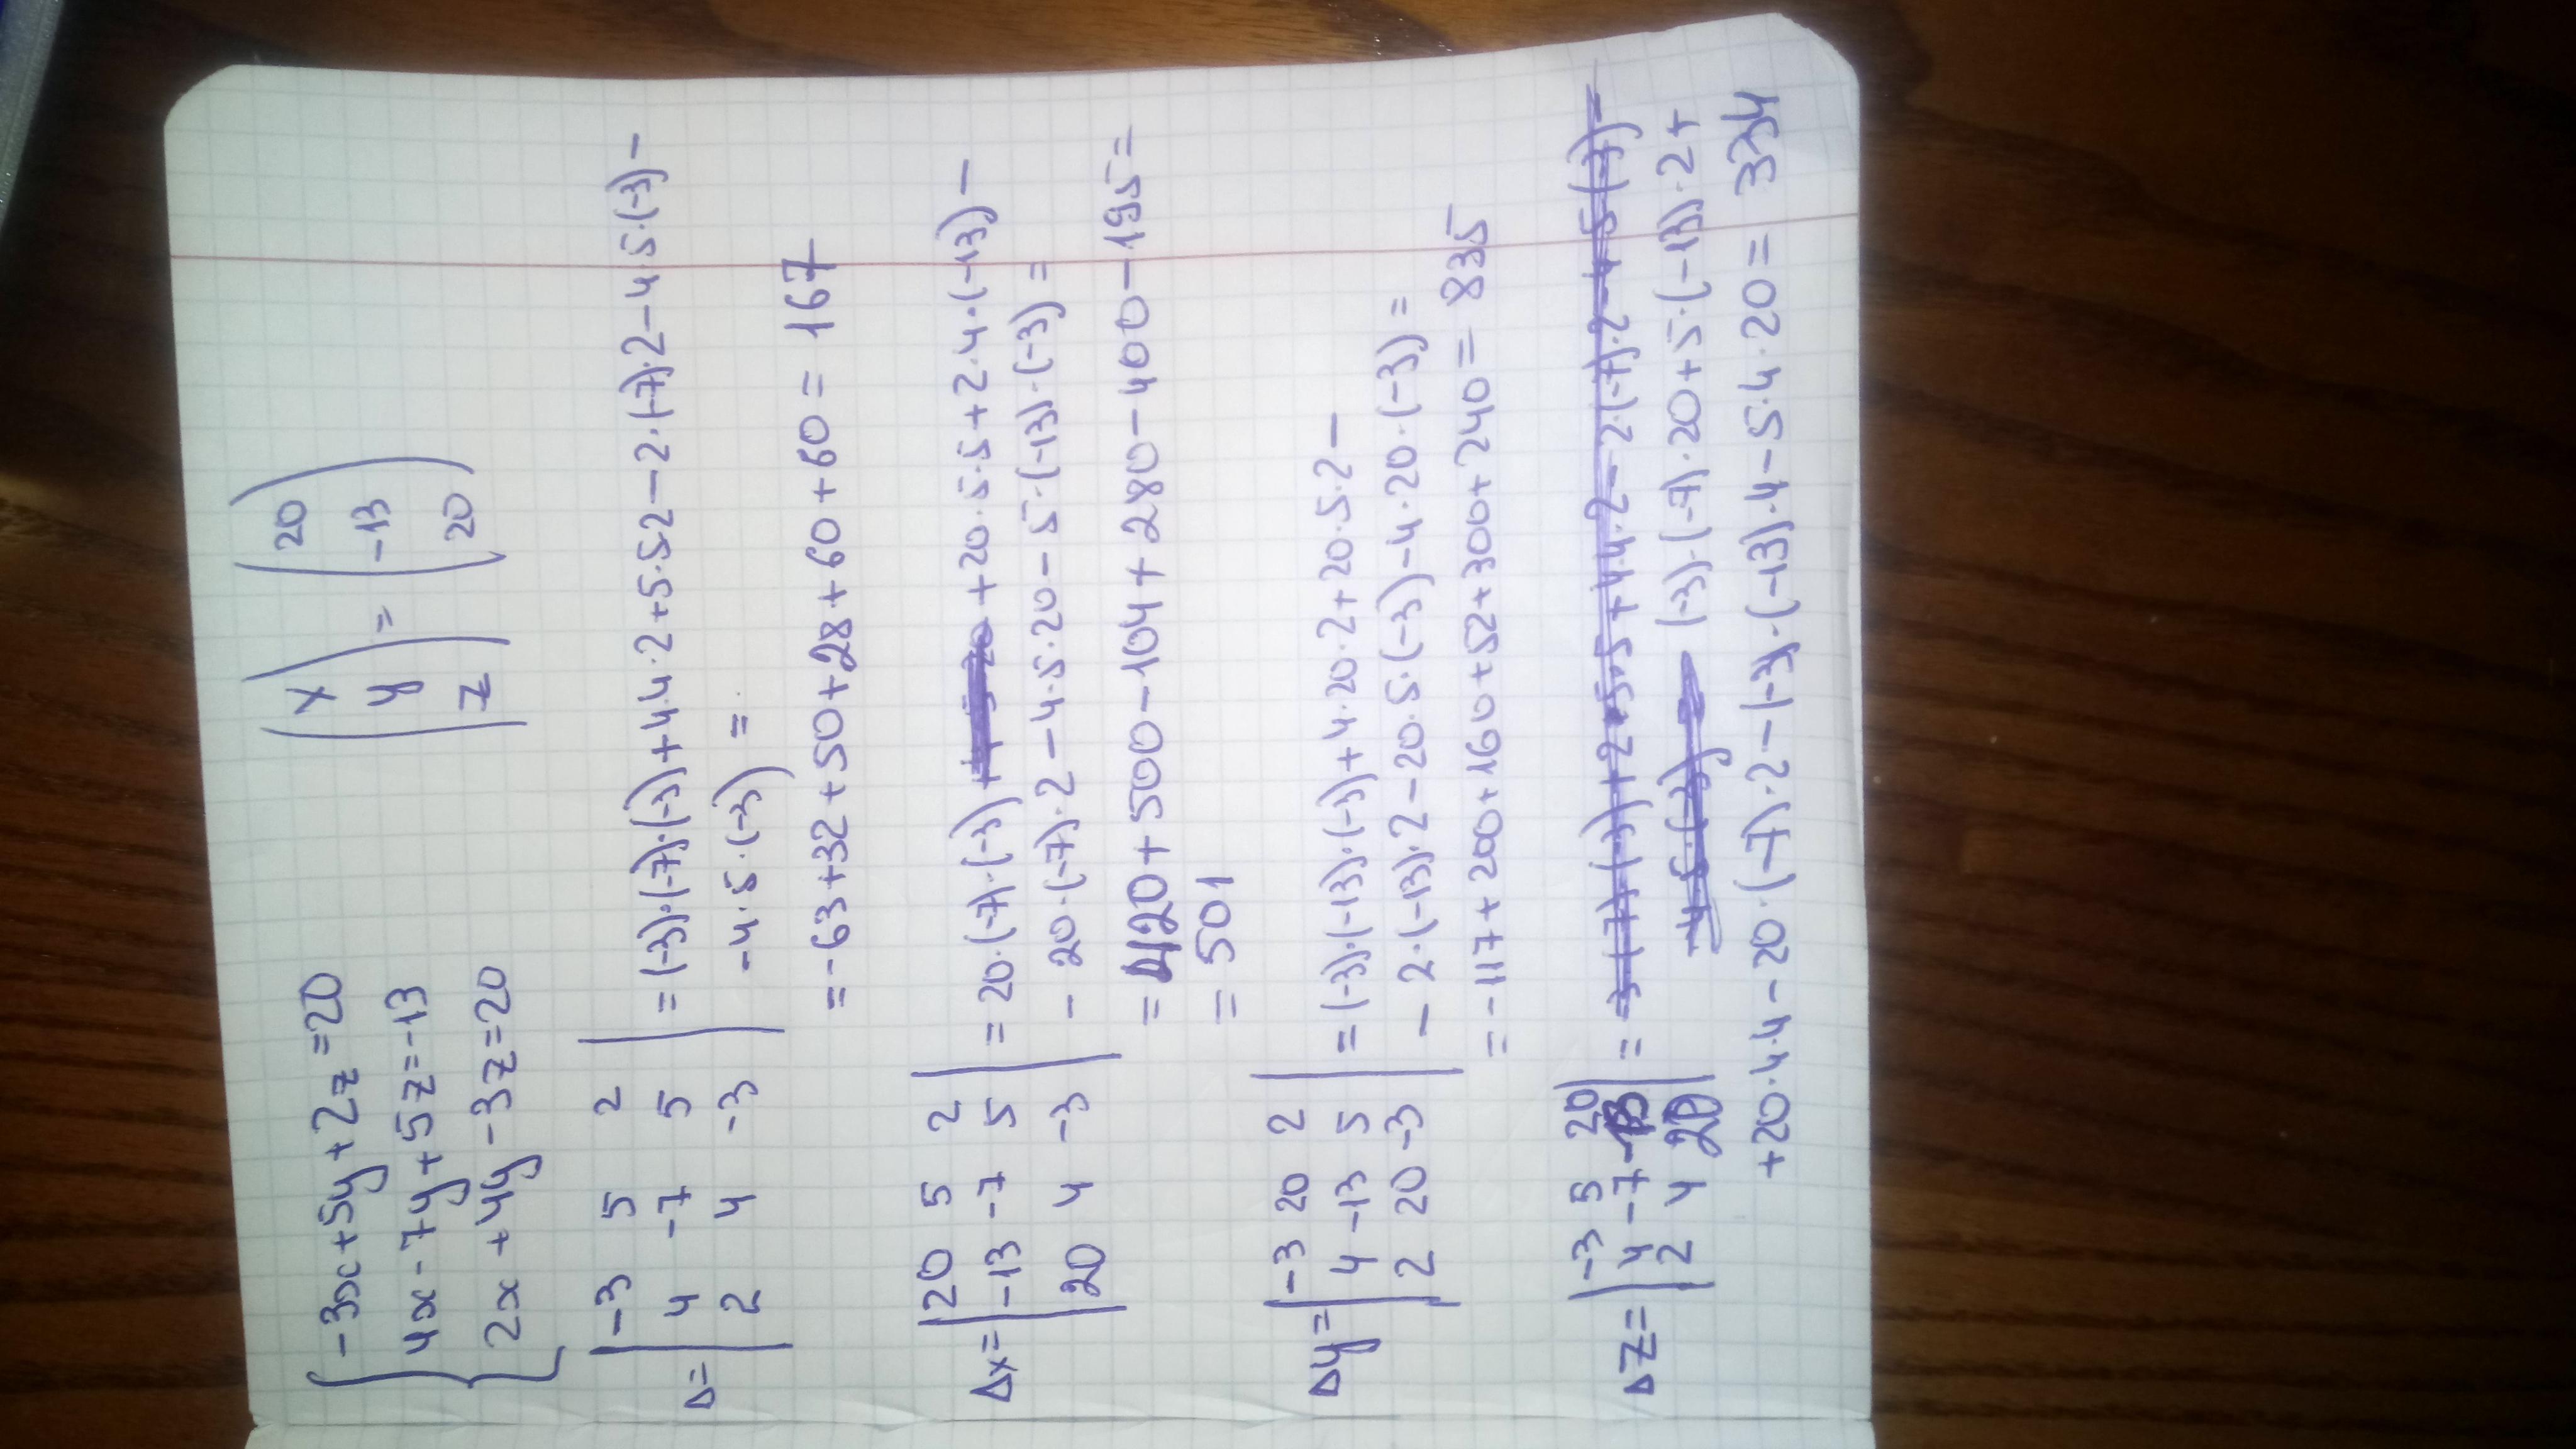 -3x+5y+2z=20
4x-7y+5z=-13
2x+4y-3z=20
(x y z) = (20 -13 20)
Δ= |-3 5 2
4 -7 5
2 4 -3| =(-3)·(-7)·(-3)+4·4·2+5·5·2-2·(-7)·2-4·5·(-3)-
-4·5·(-3)=
=-63+32+50+28+60+60=167
Δx= |20 5 2
-13 -7 5
20 4 -3| =20·(-7)·(-3)+20·5·5+2·4·(-13)-
-20·(-7)·2-4·5·20-5·(-13)·(-3)=
=420+500-104+280-400-195=
=501
Δy= |-3 20 2
4 -13 5
2 20 -3| =(-3)·(-13)·(-3)+4·20·2+20·5·2-
-2·(-13)·2-20·5·(-3)-4·20·(-3)=
=-117+200+160+52+300+240=835
Δz= |-3 5 20
4 -7 -13
2 4 20| = (-3)·(-7)·20+5·(-13)·2+
+20·4·4-20·(-7)·2-(-3)·(-13)·4-5·4·20=334